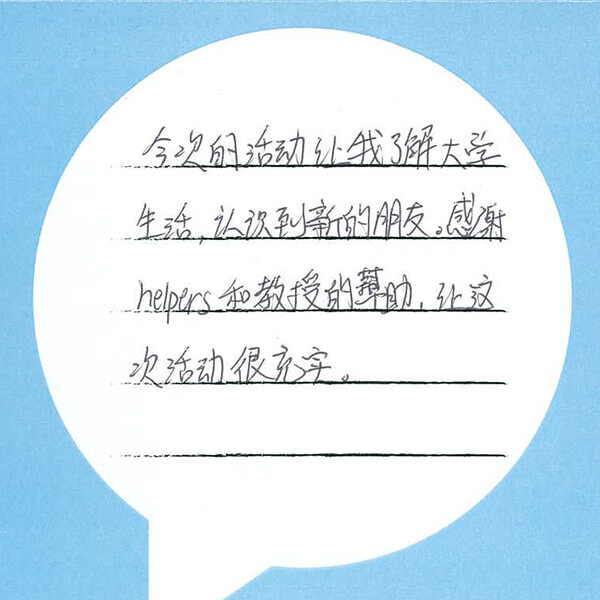 今次的活动让我了解大学
生活,认识到新的朋友。感谢
helpers和教授的幫助,让这
次活动很充实。